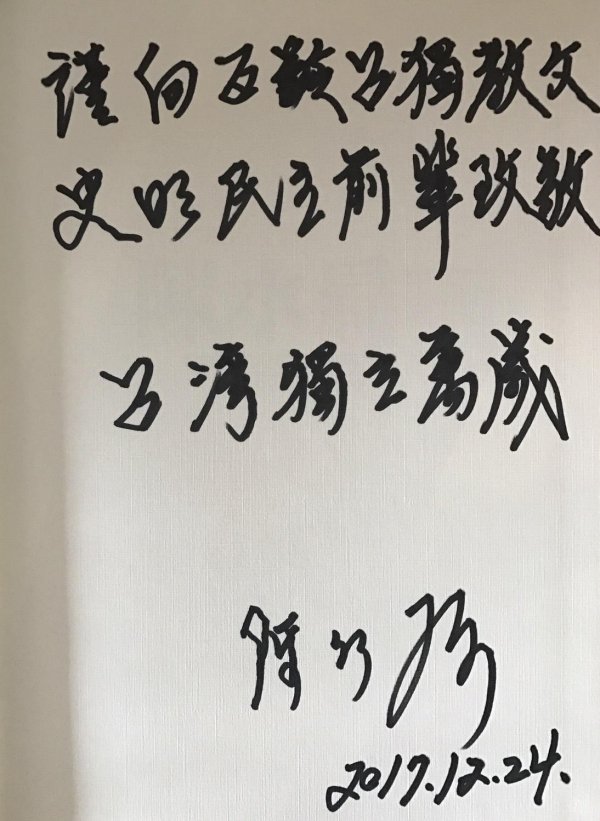 謹向百歲台獨教父
史明民主前輩致敬
台灣獨立萬歲
陳
2017.12.24.